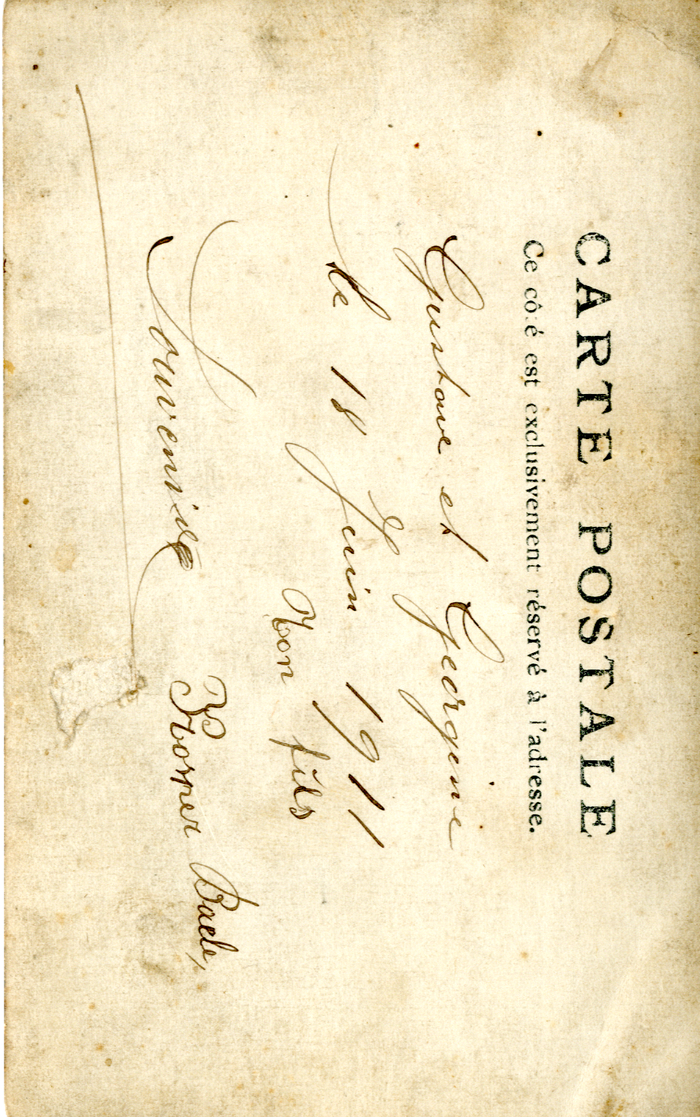 CARTE POSTALE
Ce cô.é est exclusivement réservé à l'adresse.
Gustave et Georgine
le 18 Juin 1911
fils
Souvenire